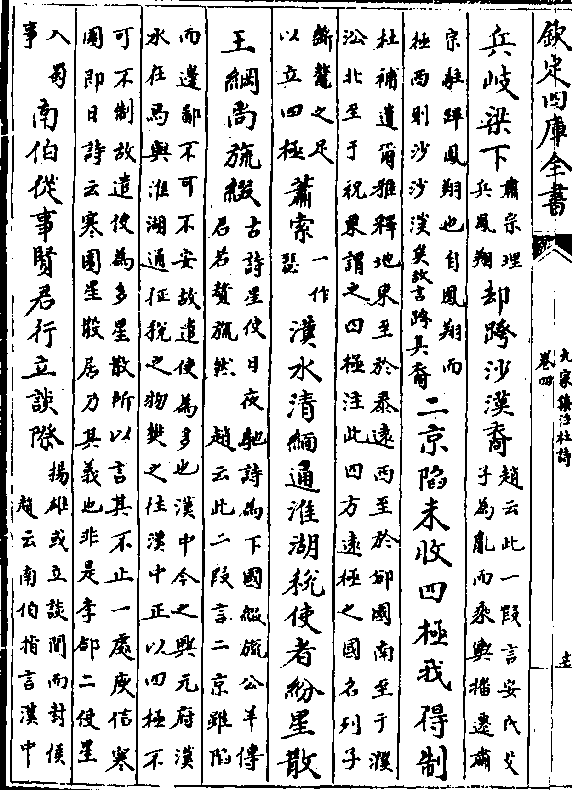 欽定四庫全書
九家集注杜詩
卷四
兵岐梁下
肅宗理
兵鳳翔
却跨沙漠裔
趙云此一段言安氏父
子為亂而乘輿播遷肅
宗駐蹕鳳翔也自鳳翔而
極西則沙沙漠矣故言跨其裔
二京陷未收四極我得制
杜補遺爾雅釋地東至於泰遠西至於邠國南至于濮
沿北至于祝栗謂之四極注此四方遠極之國名列子
斷鼇之足
以立四極
蕭索
一作
瑟
漢水清緬通淮湖稅使者紛星散
王綱尚旒綴
古詩星使日夜馳詩為下國綴旒公羊傳
君若贅旒然
趙云此二段言二京雖陷
而邊鄙不可不安故遣使為多也漢中今之興元府漢
水在焉與淮湖通征稅之物樊之徃漢中正以四極不
可不制故遣使為多星散所以言其不止一處庾信寒
園即日詩云寒園星散居乃其義也非是李郃二使星
入蜀
事
南伯從事賢君行立談際
揚雄或立談間而封侯
趙云南伯指言漢中